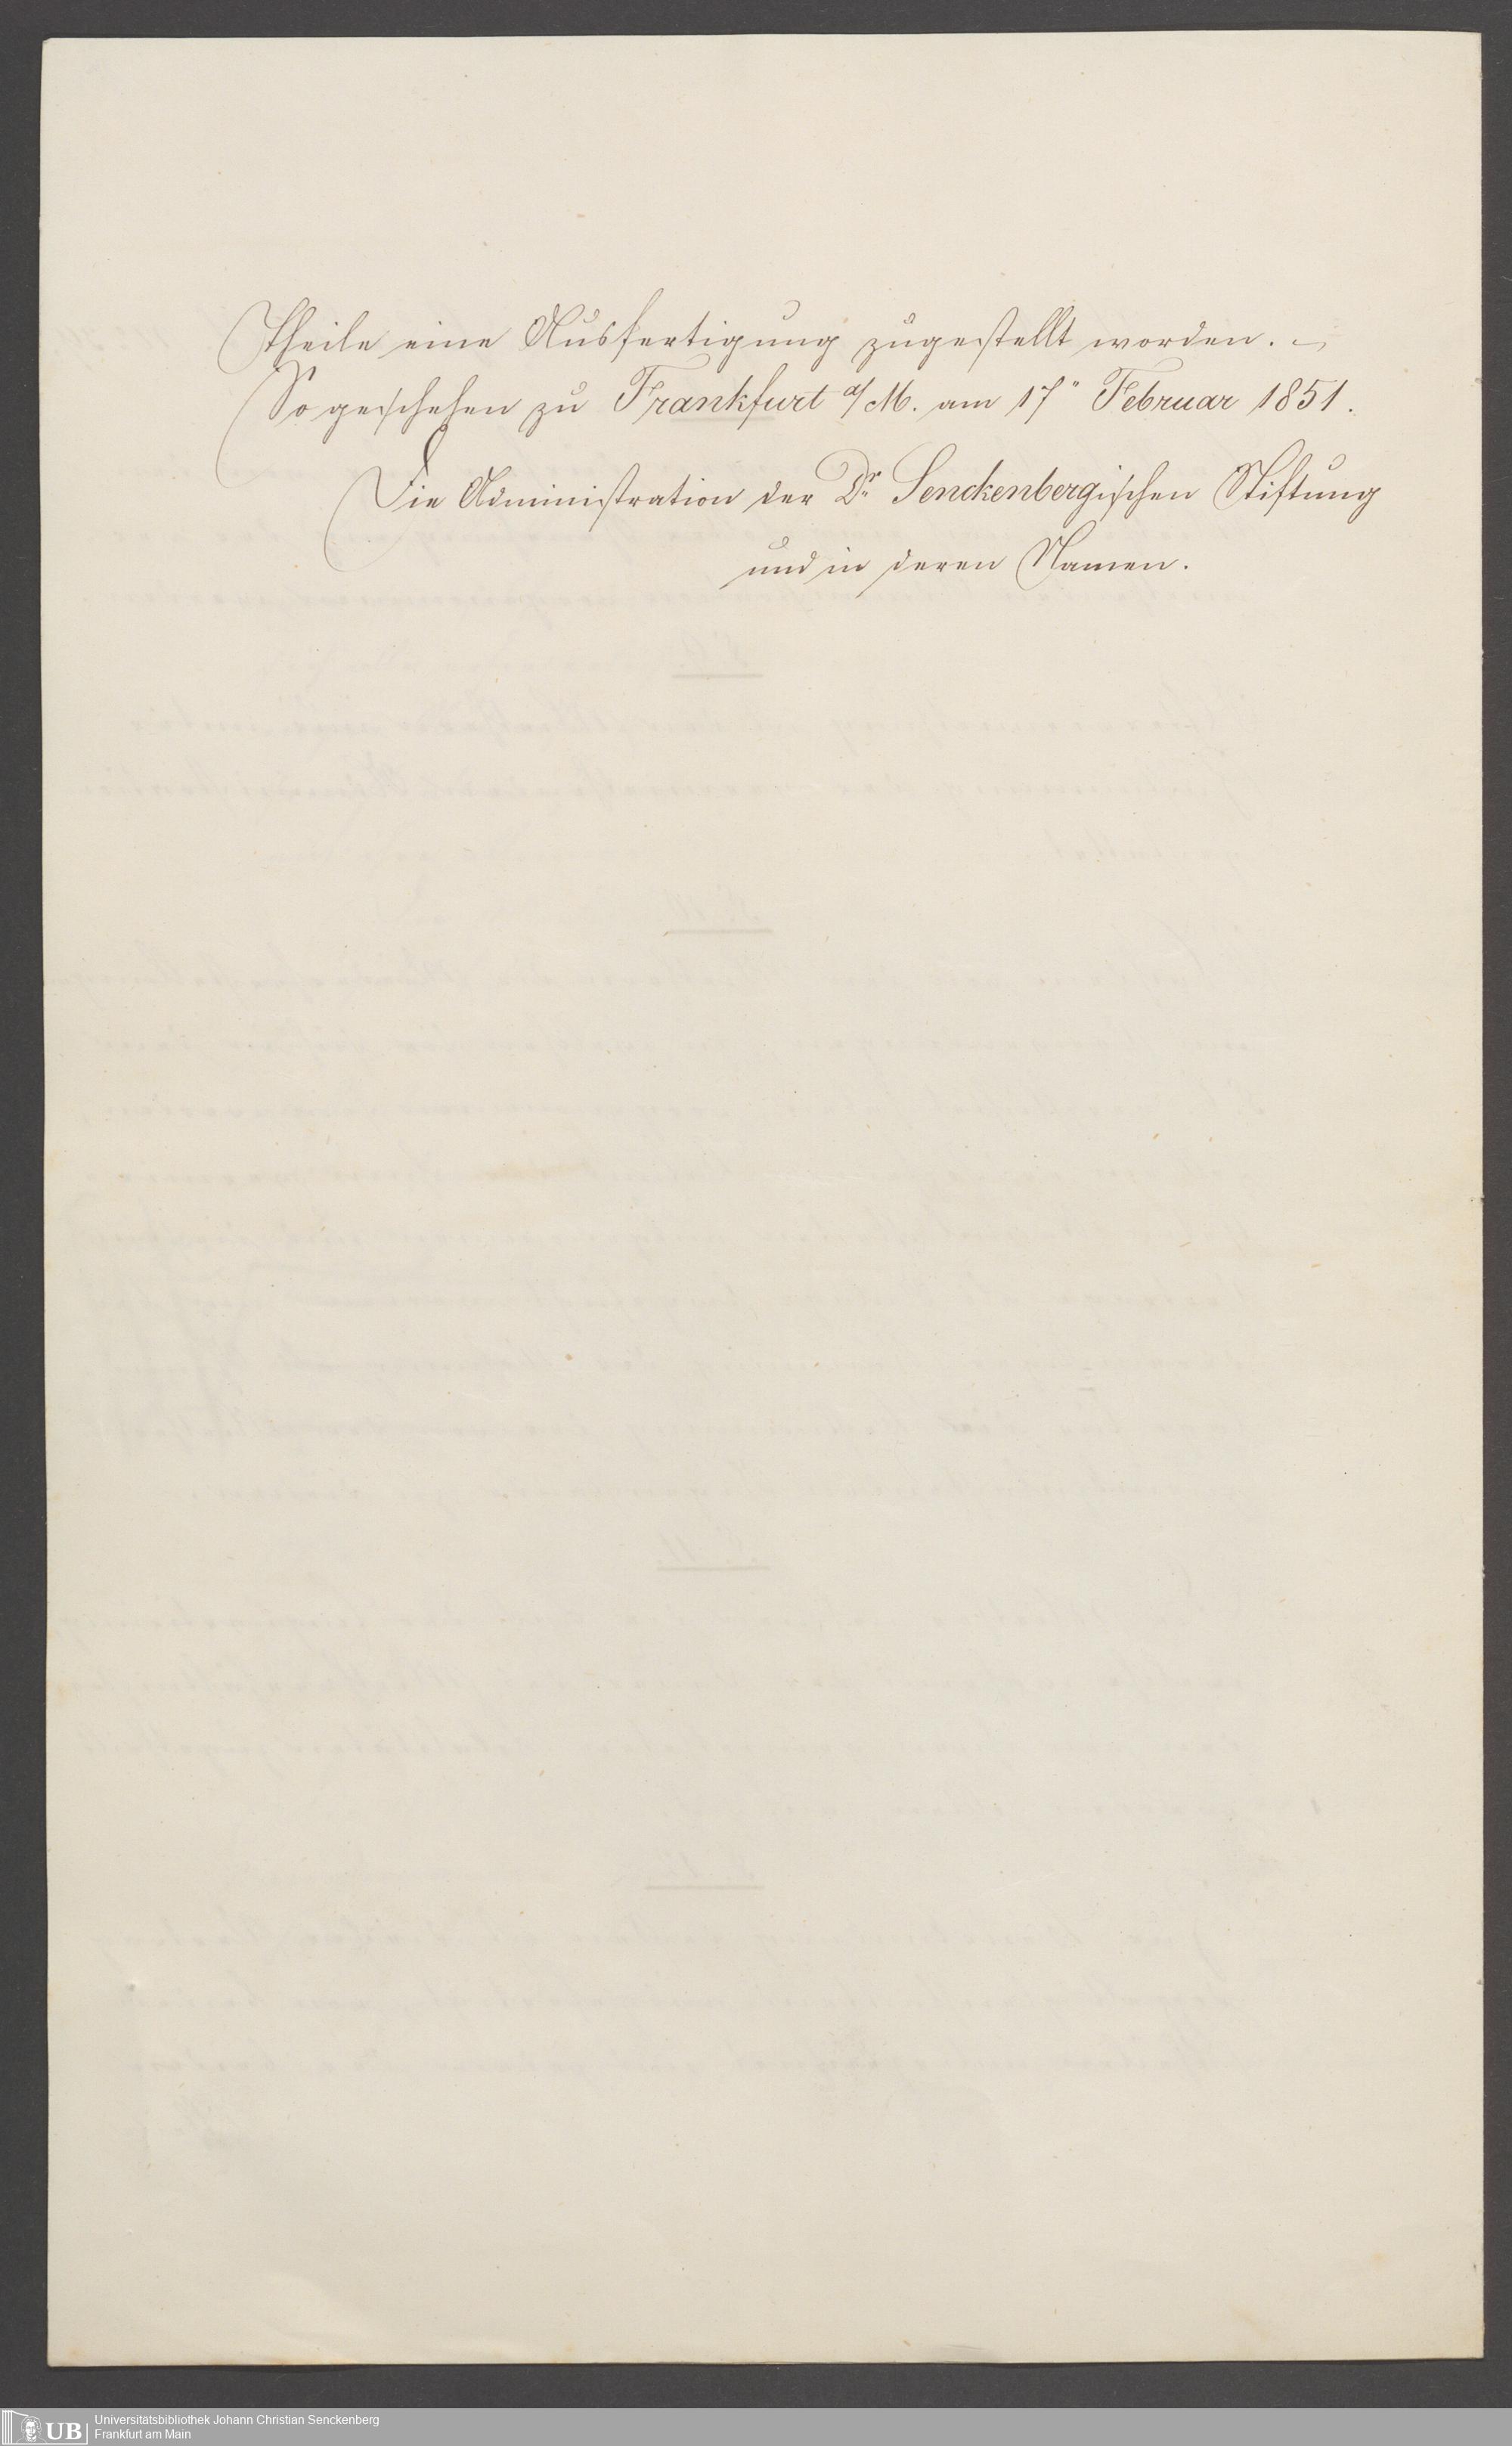 Theile eine Ausfertigung zugestellt worden. –
So geschehen zu Frankfurt a/M. am 17" Februar 1851.
Die Administration der Dr. Senckenbergischen Stiftung
und in deren Namen.
UB
Universitätsbibliothek Johann Christian Senckenberg
Frankfurt am Main